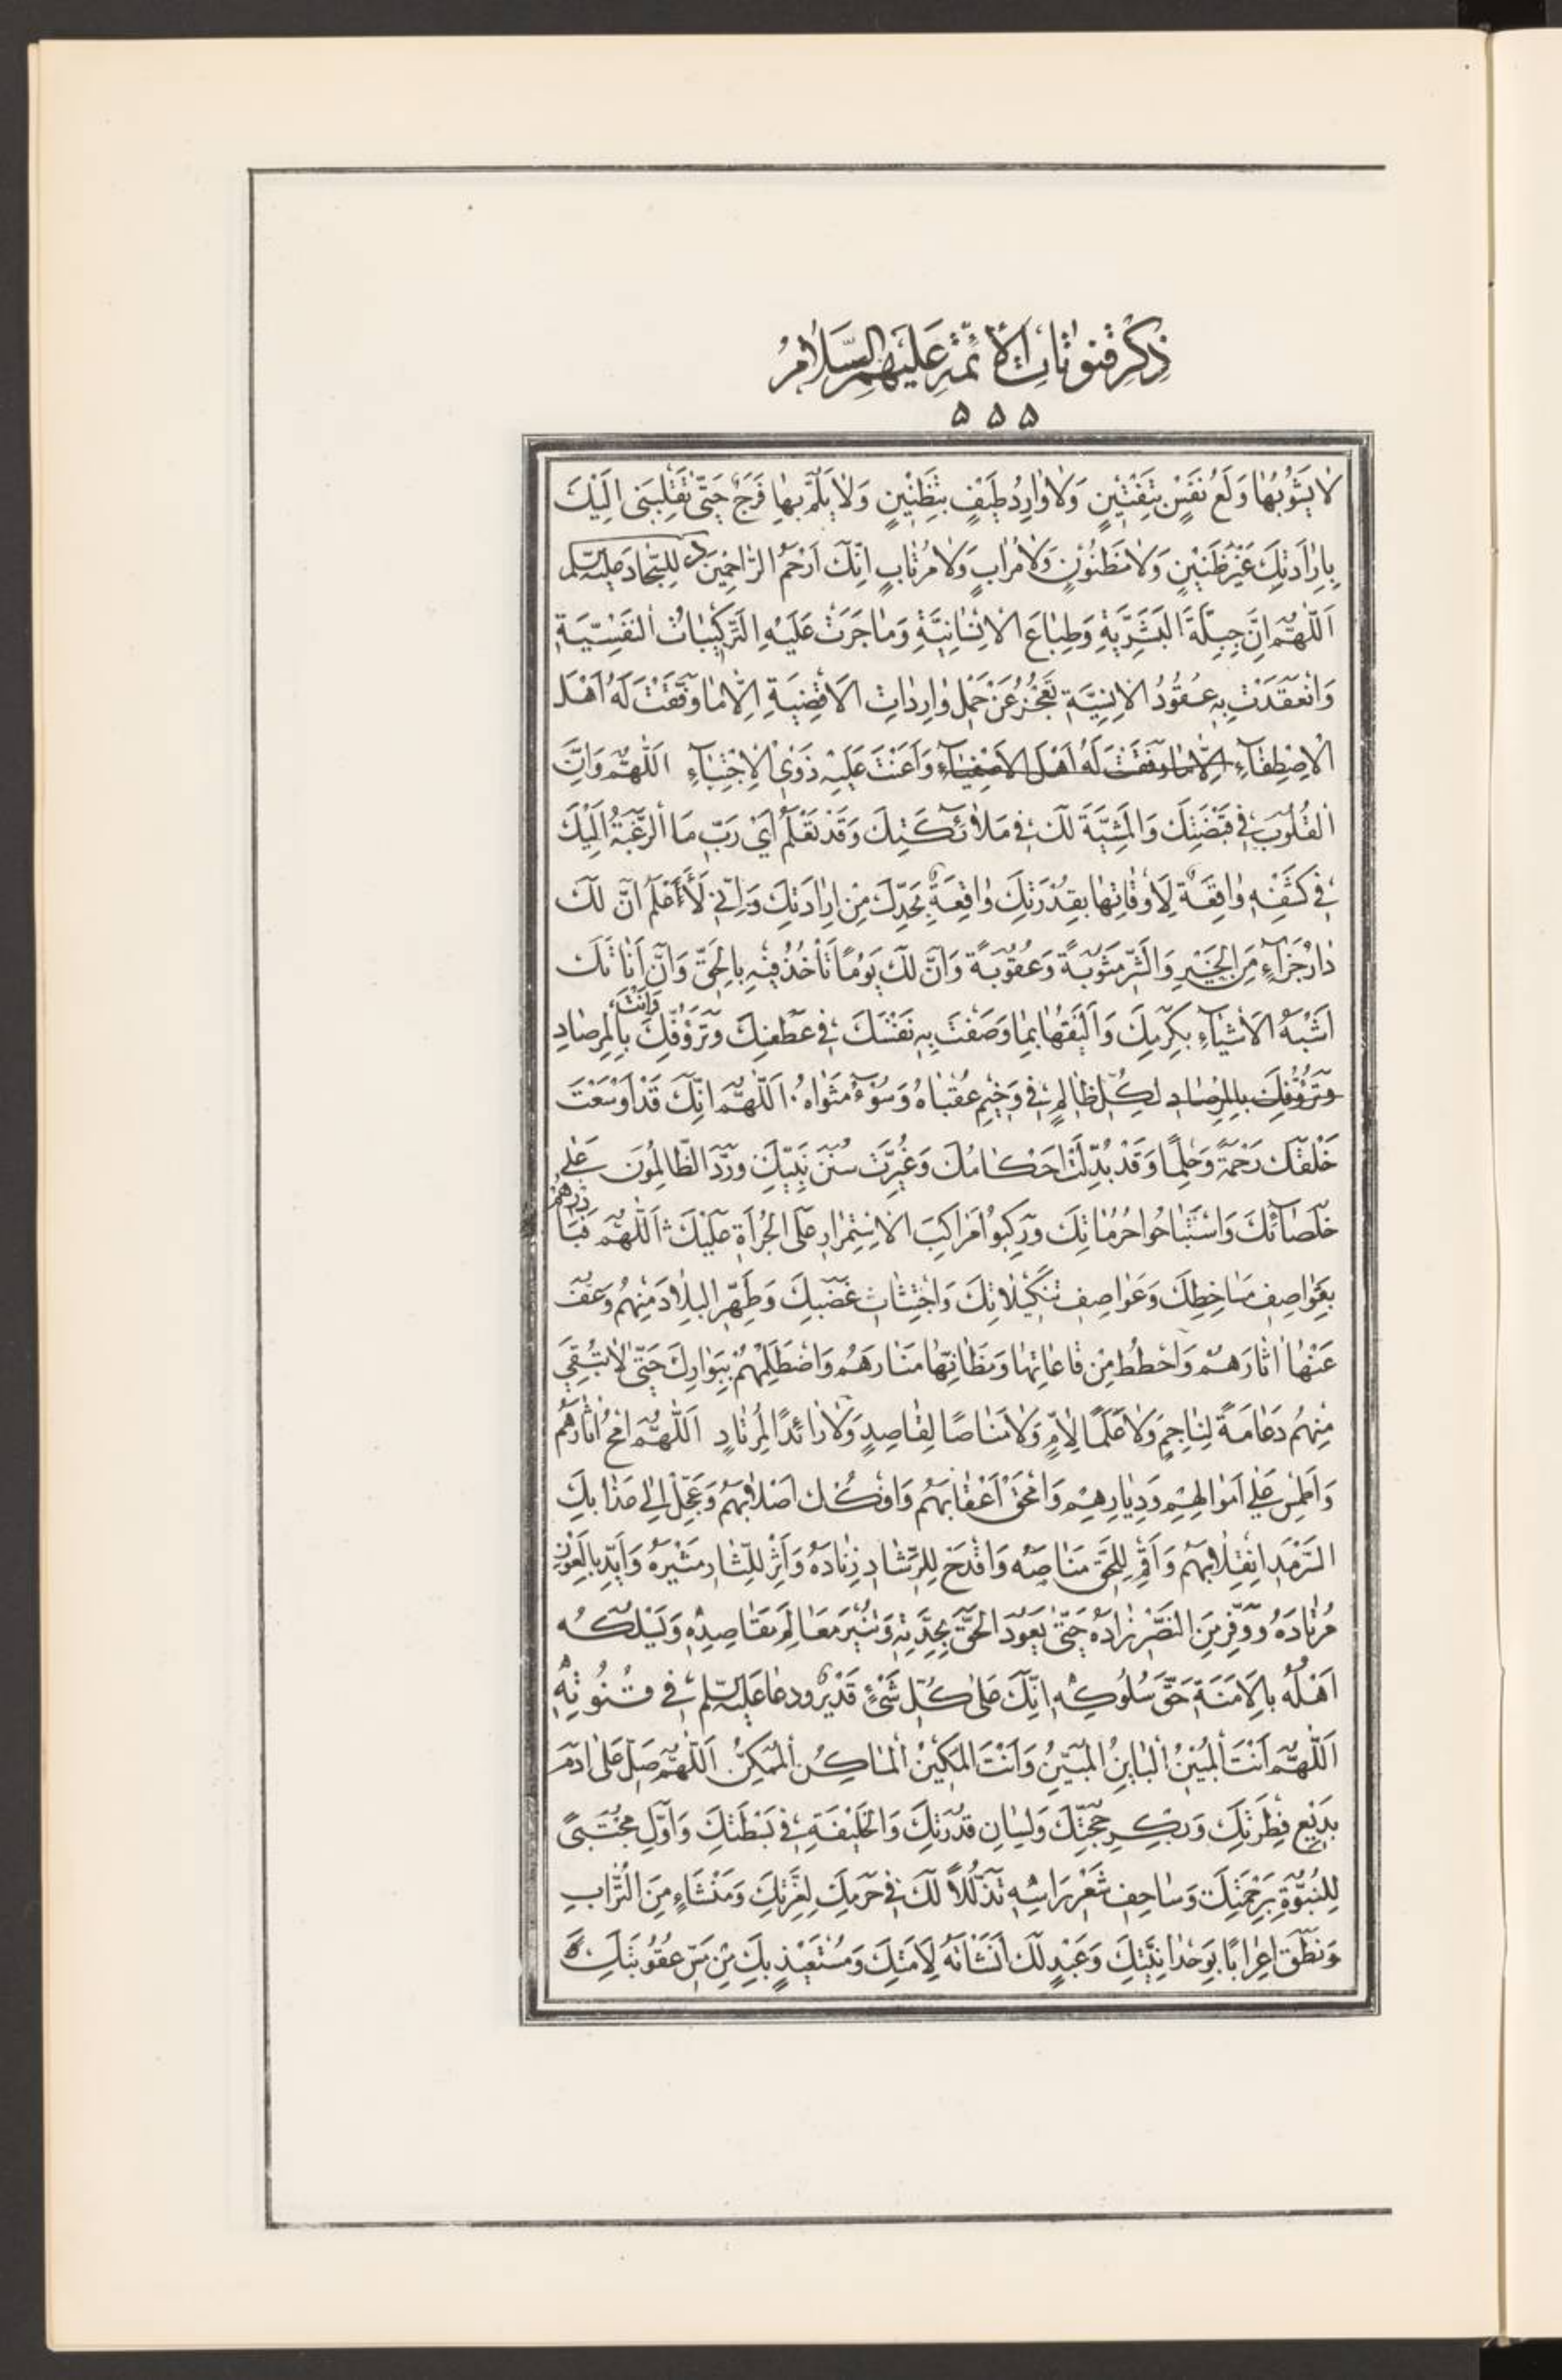 ذِكْرُ قُنُوتَاتِ الْأَئِمَّةِ عَلَيْهِمُ السَّلَامُ
۵ ۵ ۵
لَا يَشُوْبُهَا وَلَعُ نَفْسٍ بِتَفْتِيْنٍ وَلَا وَارِدُ طَيْفٍ بِتَظْنِيْنٍ وَلَا يَلُمُّ بِهَا فَرَجٌ حَتّٰى تَقْلِبَنِى اِلَيْكَ
بِاِرَادَتِكَ غَيْرَ ظَنِيْنٍ وَلَا مَظْنُوْنٍ وَلَا مُرَابٍ وَلَا مُرْتَابٍ اِنَّكَ اَرْحَمُ الرَّاحِمِيْنَ للسّجاد عليه السلم
اَللّٰهُمَّ اِنَّ جِبِلَّةَ الْبَشَرِيَّةِ وَطِبَاعَ الْاِنْسَانِيَّةِ وَمَا جَرَتْ عَلَيْهِ التَّرْكِيْبَاتُ النَّفْسِيَّةِ
وَانْعَقَدَتْ بِهِ عُقُوْدُ الْاِنِسِيَّةِ تَعْجُزُ عَنْ حَمْلِ وَارِدَاتِ الْاَقْضِيَةِ اِلَّا مَا وَفَّقْتَ لَهُ اَهْلَ
الْاِصْطِفَآءِ اِلَّا مَا وَفَّقْتَ لَهُ اَهْلَ الْاَصْفِيَآءِ وَاَعَنْتَ عَلَيْهِ ذَوِى الْاِجْتِبَآءِ اَللّٰهُمَّ وَاِنَّ
الْقُلُوْبَ فِى قَبْضَتِكَ وَالْمَشِيَّةَ لَكَ فِى مَلَآئِكَتِكَ وَقَدْ تَعْلَمُ اَىْ رَبِّ مَا الرَّغْبَةُ اِلَيْكَ
فِى كَشْفِهِ وَاقِعَةٌ لِاَوْقَاتِهَا بِقُدْرَتِكَ وَاقِعَةٌ بِحَدِّكَ مِنْ اِرَادَتِكَ وَاِنِّى لَاَعْلَمُ اَنَّ لَكَ
دَارَ جَزَآءٍ مِنَ الْخَيْرِ وَالشَّرِّ مَثُوْبَةً وَعُقُوْبَةً وَاَنَّ لَكَ يَوْمًا تَاْخُذُ فِيْهِ بِالْحَقِّ وَاَنَّ اَنَاتَكَ
اَشْبَهُ الْاَشْيَآءِ بِكَرَمِكَ وَاَلْيَقُهَا بِمَا وَصَفْتَ بِهِ نَفْسَكَ فِى عَطْفِكَ وَتَرَؤُّفِكَ وَاَنْتَ بِالْمِرْصَادِ
وَتَرَؤُّفِكَ بِالْمِرْصَادِ لِكُلِّ ظَالِمٍ فِى وَخِيْمِ عُقْبَاهُ وَسُوْءِ مَثْوَاهُ اَللّٰهُمَّ اِنَّكَ قَدْ اَوْسَعْتَ
خَلْقَكَ رَحْمَةً وَحِلْمًا وَقَدْ بُدِّلَتْ اَحْكَامُكَ وَغُيِّرَتْ سُنَنُ نَبِيِّكَ وَمَرَّدَ الظَّالِمُوْنَ عَلٰى
خُلَصَآئِكَ وَاسْتَبَاحُوا حُرُمَاتِكَ وَرَكِبُوْا مَرَاكِبَ الْاِسْتِمْرَارِ عَلَى الْجُرْاَةِ عَلَيْكَ اَللّٰهُمَّ فَبَادِرْهُمْ
بِقَوَاصِفِ سَاخِطِكَ وَعَوَاصِفِ تَنْكِيْلَاتِكَ وَاجْتِثَاثِ غَضَبِكَ وَطَهِّرِ الْبِلَادَ مِنْهُمْ وَعَفِّ
عَنْهَا اٰثَارَهُمْ وَاحْطُطْ مِنْ قَاعَاتِهَا وَمَظَانِّهَا مَنَارَهُمْ وَاصْطَلِمْهُمْ بِبَوَارِكَ حَتّٰى لَا تُبْقِىَ
مِنْهُمْ دَعَامَةً لِنَاجِمٍ وَلَا عَلَمًا لِاٰمٍّ وَلَا مَنَاصًا لِقَاصِدٍ وَلَا رَائِدًا لِمُرْتَادٍ اَللّٰهُمَّ امْحُ اٰثَارَهُمْ
وَاطْمِسْ عَلٰى اَمْوَالِهِمْ وَدِيَارِهِمْ وَامْحَقْ اَعْقَابَهُمْ وَافْكُكْ اَصْلَابَهُمْ وَعَجِّلْ اِلٰى عَذَابِكَ
السَّرْمَدِ انْقِلَابَهُمْ وَاَقِمْ لِلْحَقِّ مَنَاصِبَهُ وَاقْدَحْ لِلرَّشَادِ زِنَادَهُ وَاَثِرْ لِلثَّارِ مُثِيْرَهُ وَاَيِّدْ بِالْعَوْنِ
مُرْتَادَهُ وَوَفِّرْ مِنَ النَّصْرِ زَادَهُ حَتّٰى يَعُوْدَ الْحَقُّ بِجِدَّتِهِ وَتُنِيْرَ مَعَالِمَ مَقَاصِدِهِ وَيَسْلُكُهُ
اَهْلُهُ بِالْاَمَنَةِ حَقَّ سُلُوْكِهِ اِنَّكَ عَلٰى كُلِّ شَىْءٍ قَدِيْرٌ ودعا عليه السلم فِى قُنُوْتِهِ
اَللّٰهُمَّ اَنْتَ الْمُبِيْنُ الْبَايِنُ الْمُبَيِّنُ وَاَنْتَ الْمَكِيْنُ الْمَاكِنُ الْمُمَكِّنُ اَللّٰهُمَّ صَلِّ عَلٰى اٰدَمَ
بَدِيْعِ فِطْرَتِكَ وَبِكْرِ حُجَّتِكَ وَلِسَانِ قُدْرَتِكَ وَالْخَلِيْفَةِ فِى بَسْطَتِكَ وَاَوَّلِ مُجْتَبًى
لِلنُّبُوَّةِ بِرَحْمَتِكَ وَسَاحِفِ شَعْرِ رَاْسِهِ تَذَلُّلًا لَكَ فِى حَرَمِكَ لِعِزَّتِكَ وَمَنْشَاءٍ مِنَ التُّرَابِ
وَنَطَقَ اِعْرَابًا بِوَحْدَانِيَّتِكَ وَعَبْدٍ لَكَ اَنْشَاْتَهُ لِاَمَتِكَ وَمُسْتَعِيْذٍ بِكَ مِنْ مَسِّ عُقُوْبَتِكَ